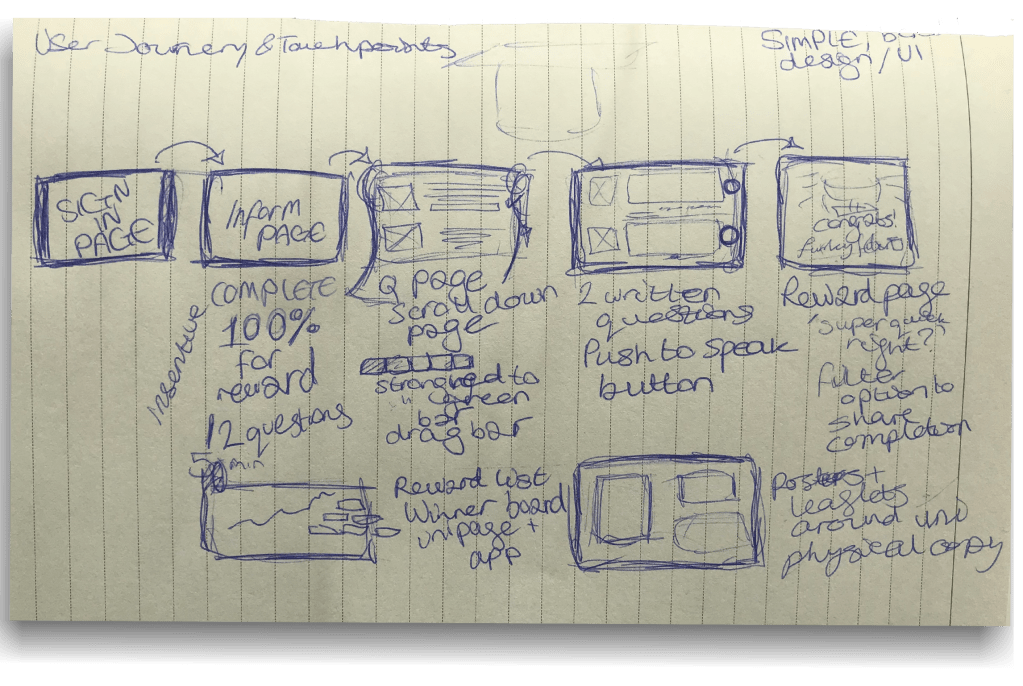 User Journery & Touchpoints
SIMPLE,
design / UI
SIGN
IN
PAGE
Inform
PAGE
congrats!
Insentive
COMPLETE
100%
for
reward
12 questions
min
Q page
scroll down
page
to
green
bar
drag bar
2 written
questions
Push to speak
button
Reward page
'super quick
right?'
option to
share
completion
Reward list
Winner board
unipage +
app
posters +
leaflets
around uni
physical copy